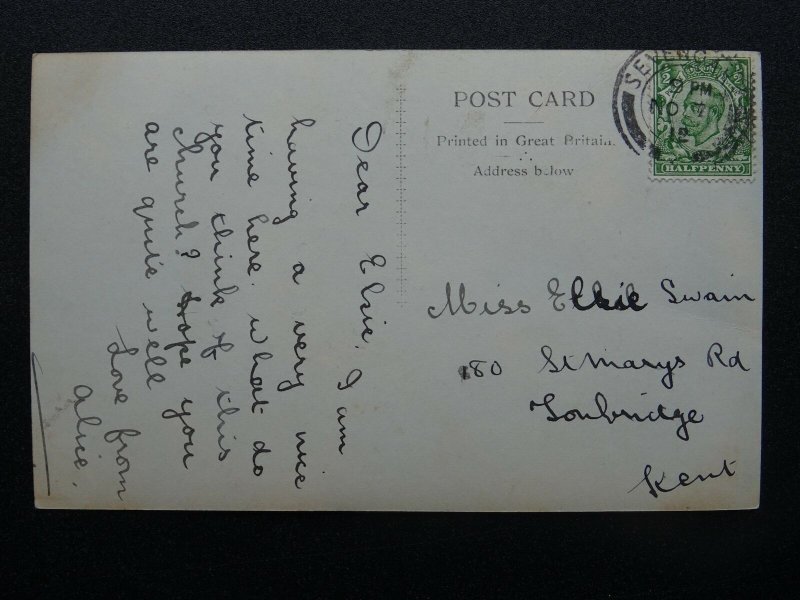 Dear Elsie, I am
having a very nice
time here. what do
you think of this
church? hope you
are quite well
Love from
Alice.
POST CARD
Printed in Great Britain.
Address below
SEVENOA
9 PM
NO
12
HALFPENNY
Miss Elsie Swain
180 St Marys Rd
Tonbridge
Kent